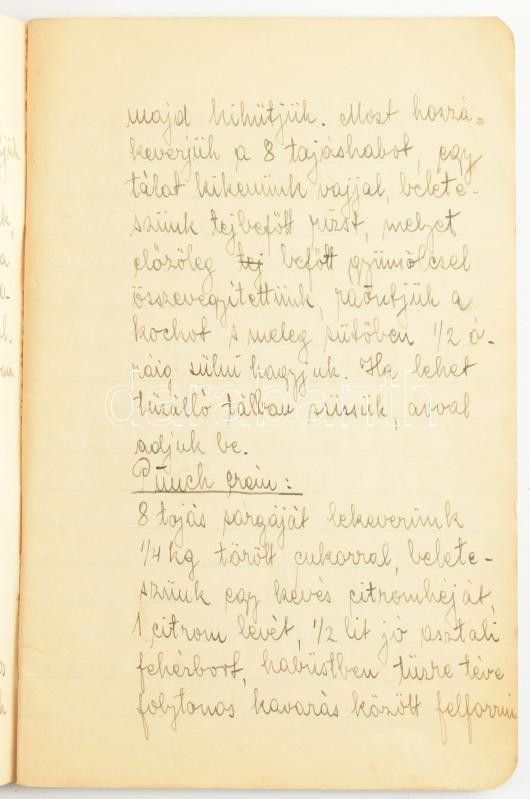 majd kihütjük. Most hoszá=
keverjük a 8 tojáshabot, egy
tálat kikenünk vajjal, beléte-
szünk tejbefőtt rizst, melyet
előzőleg tej befőtt gyümölcsel
összevegyítettünk, ráöntjük a
kochot s meleg sütőben 1/2 ó-
ráig sülni hagyjuk. Ha lehet
tüzálló tálban süssük, avval
adjuk be.
Punch crém:
8 tojás sárgáját lekeverünk
1/4 kg törött cukorral, beléte-
szünk egy kevés citromhéját,
1 citrom levét, 1/2 lit jó asztali
fehérbort, habüstben tüzre téve
folytonos kavarás között felforrni
darabanth